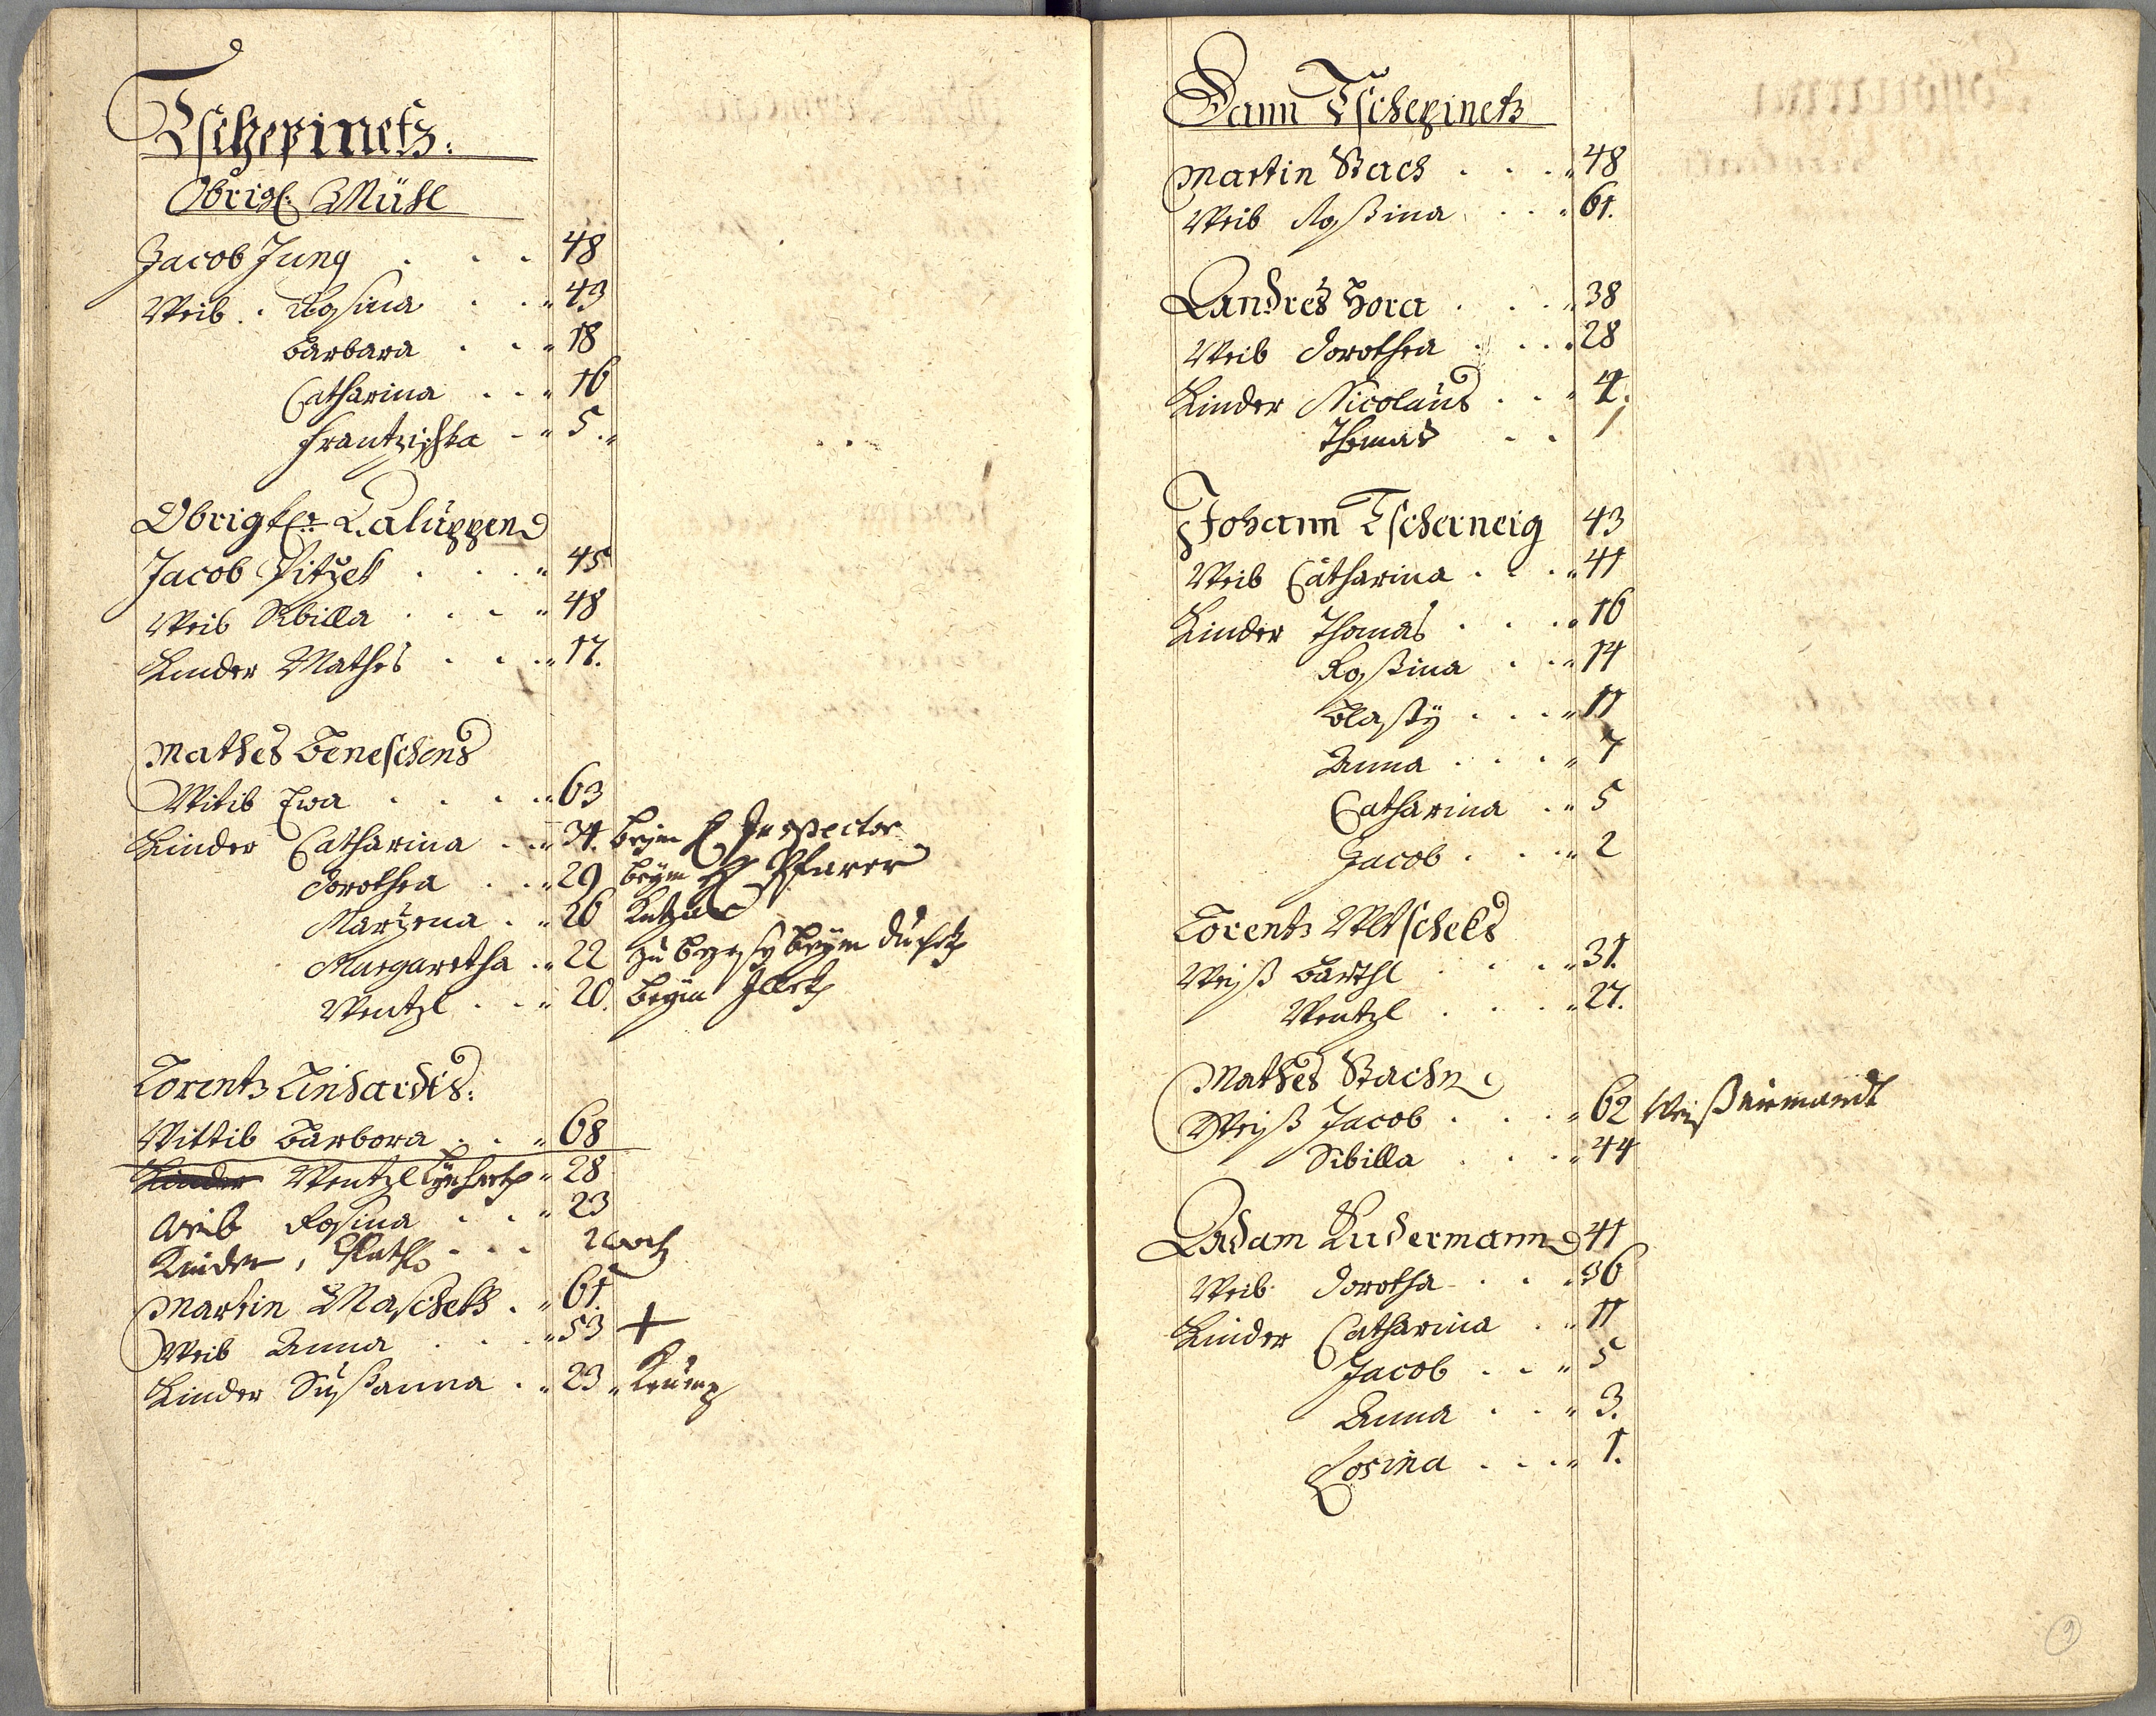 Tschepinetz.
Obrigl. Mühl
Jacob Jung . . . 48
Weib . Rosina . . " 43
Barbara . . " 18
Catharina . . " 16
Frantzischka - " 5 . "
Obrigl. Caluppen
Jacob Pitzek . . . " 45
Weib Sibilla . . . " 48
Kinder Mathes . . . " 17.
Mathes Beneschens
Witib Ewa . . . . " 63
Kinder Catharina . . " 34. beym H Inspector
Dorothea . . . " 29 beym H Pfarer
Marzena . . " 26
Margaretha . " 22 zu beym
Wentzl . . . " 20. beym
Lorentz Linhardts.
Wittib Barbora . . " 68
Kinder Wentzl Lynhartz " 28
Weib Rosina . . . " 23
Kinder, . . .
Martin Maschek . " 61.
Weib Anna . . . " 53 +
Kinder Sußanna . " 23 " Krump
Dann Tschepinetz
Martin Stach . . . " 48
Weib Roßina . . . " 61.
Andres Hora . . . " 38
Weib Dorothea . . . " 28
Kinder Nicolaus . . "
Thomas . . 1
Johann Tscherneig 43
Weib Catharina . . . " 41
Kinder Thomas . . . " 16
Roßina . . " 14
Blasÿ . . . " 11
Anna . . . " 7
Catharina . . " 5
Jacob . . . " 2
Lorentz
Weiß Barthl . . . " 31.
Wentzl . . . " 27.
Mathes Stachn
Weiß Jacob . . . " 62 Weiß niemandt
Sibilla . . . " 44
Adam Ludermann 41
Weib Dorotha . . . " 36
Kinder Catharina . " 11
Jacob . . " 5
Anna . . " 3.
Rosina . . . " 1.
9